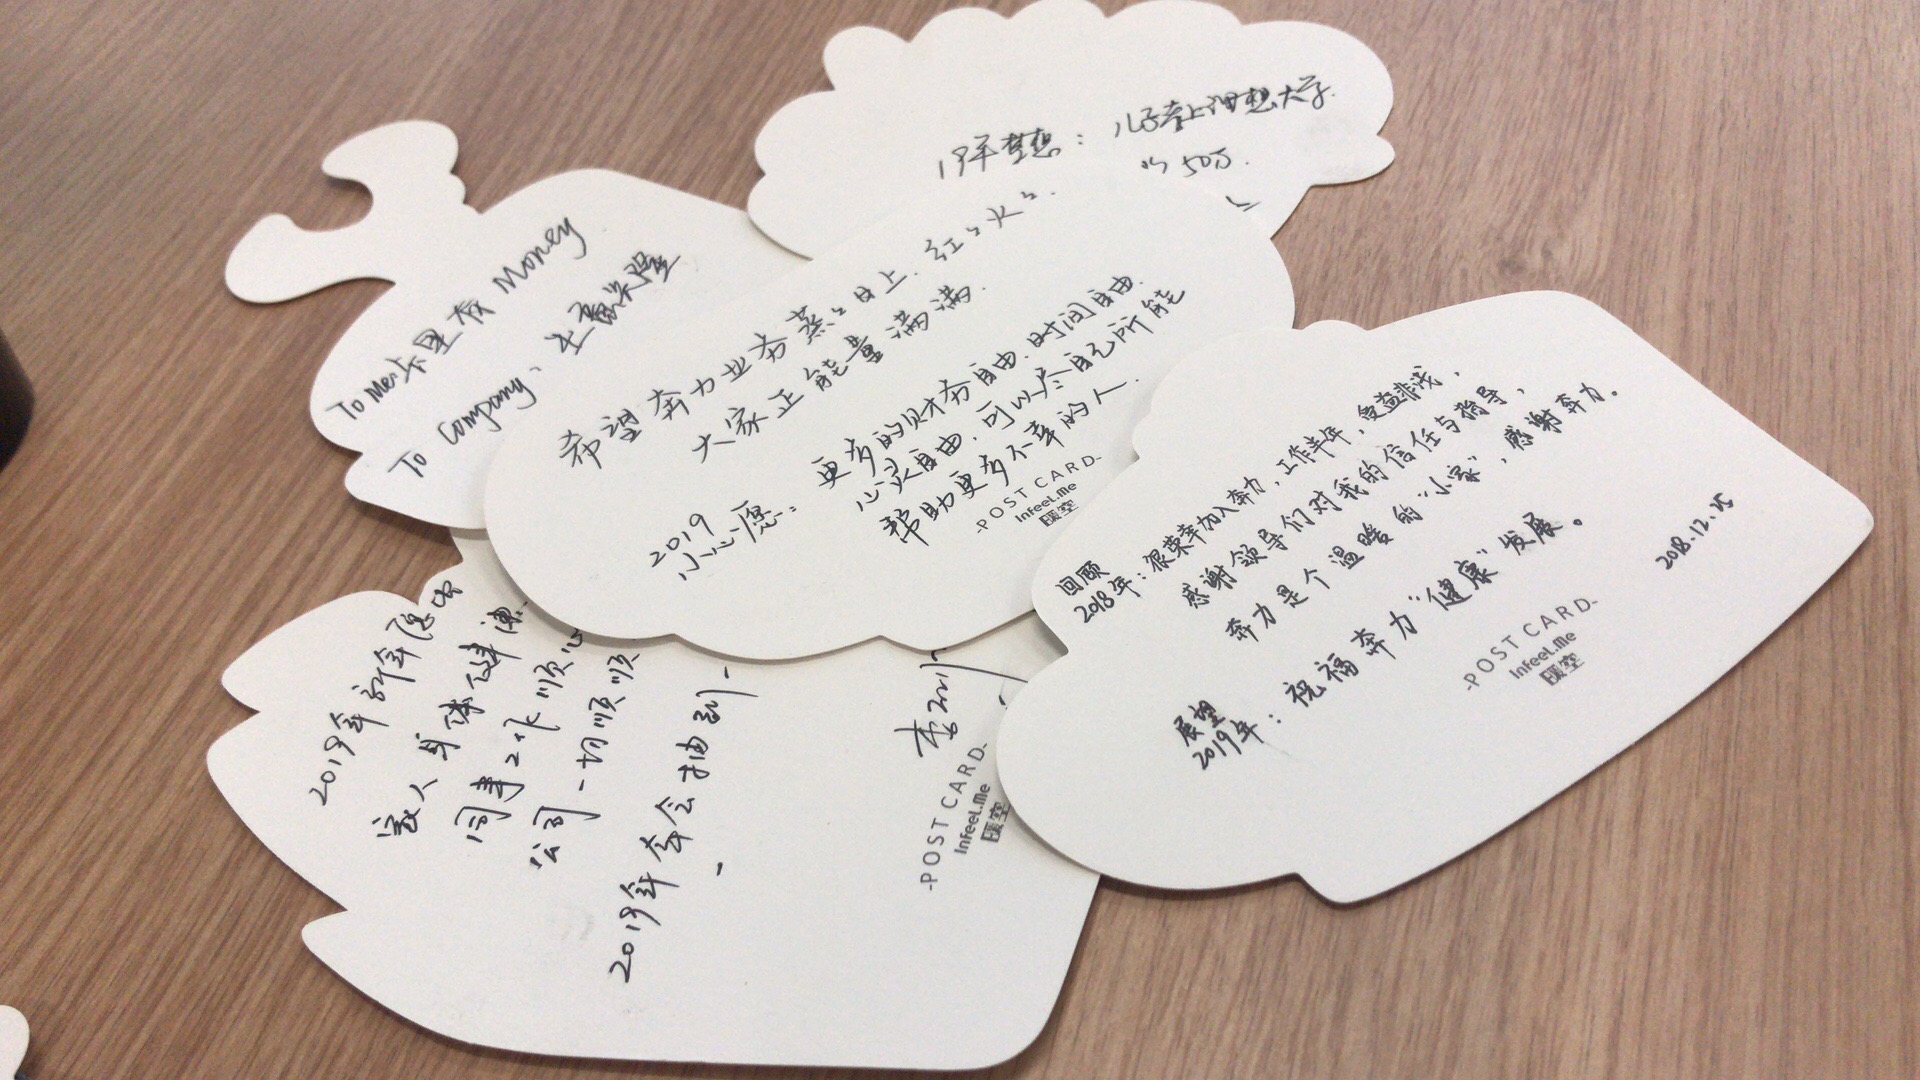 19年梦想：儿子考上理想大学.
50万.
To Me：卡里有 Money
To Company、上市
希望奔力业务蒸〻日上.红〻火〻.
大家正能量满满.
2019
小心愿：更多的财务自由.时间自由.
心灵自由.可以尽自己所能
帮助更多不幸的人.
-POST CARD-
InfeeL.Me
暖空
回顾
2018年：很荣幸加入奔力，工作半年，受益非浅，
感谢领导们对我的信任与指导，
奔力是个温暖的“小家”，感谢奔力.
展望
2019年：祝福奔力“健康”发展。
2018.12.25
-POST CARD-
InfeeL.Me
暖空
2019年新年愿
家人身体健康
同事工作顺心
公司一切顺顺
2019年年会抽到一
-POST CARD-
InfeeL.Me
暖空